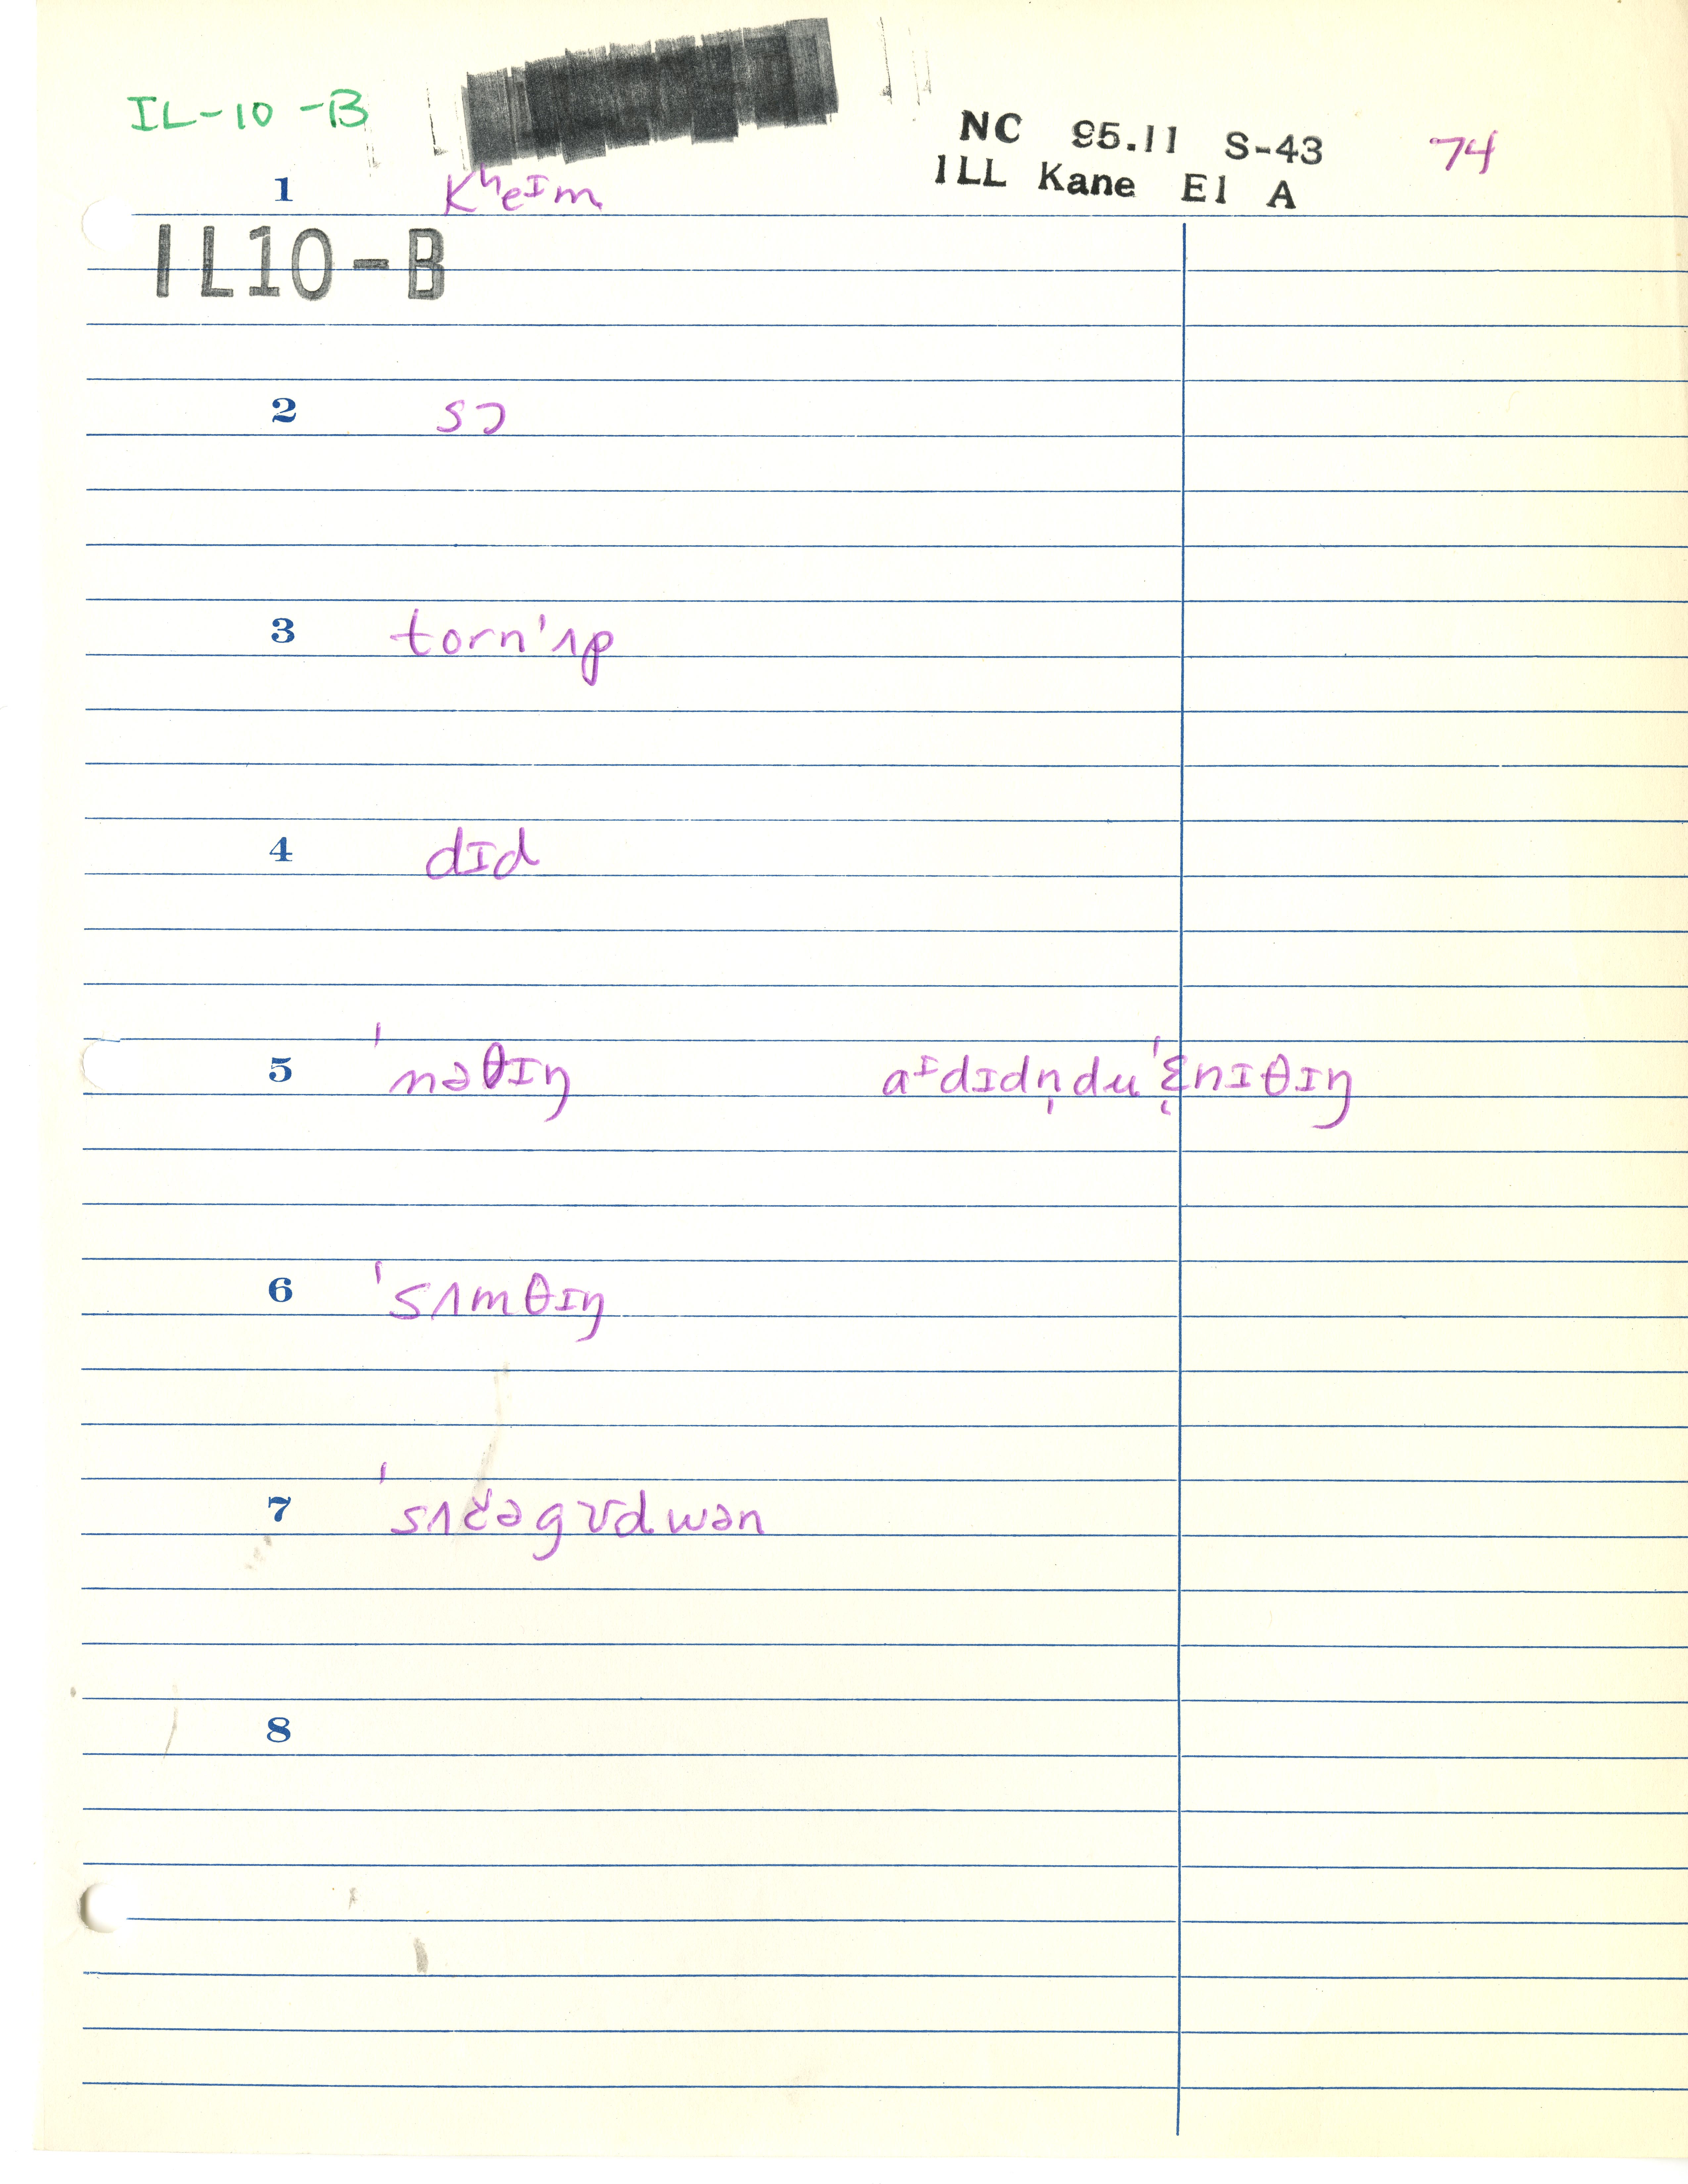 IL-10-B
NC 95.11 S-43 74
ILL Kane El A
1 kʰeᴵm
IL10-B
2 sɔ
3 torn'ʌp
4 dɪd
5 'nəθɪŋ aᴵdɪdn̩du'ɛ̜nɪθɪŋ
6 'sʌmθɪŋ
7 'sʌčəgʊdwən
8